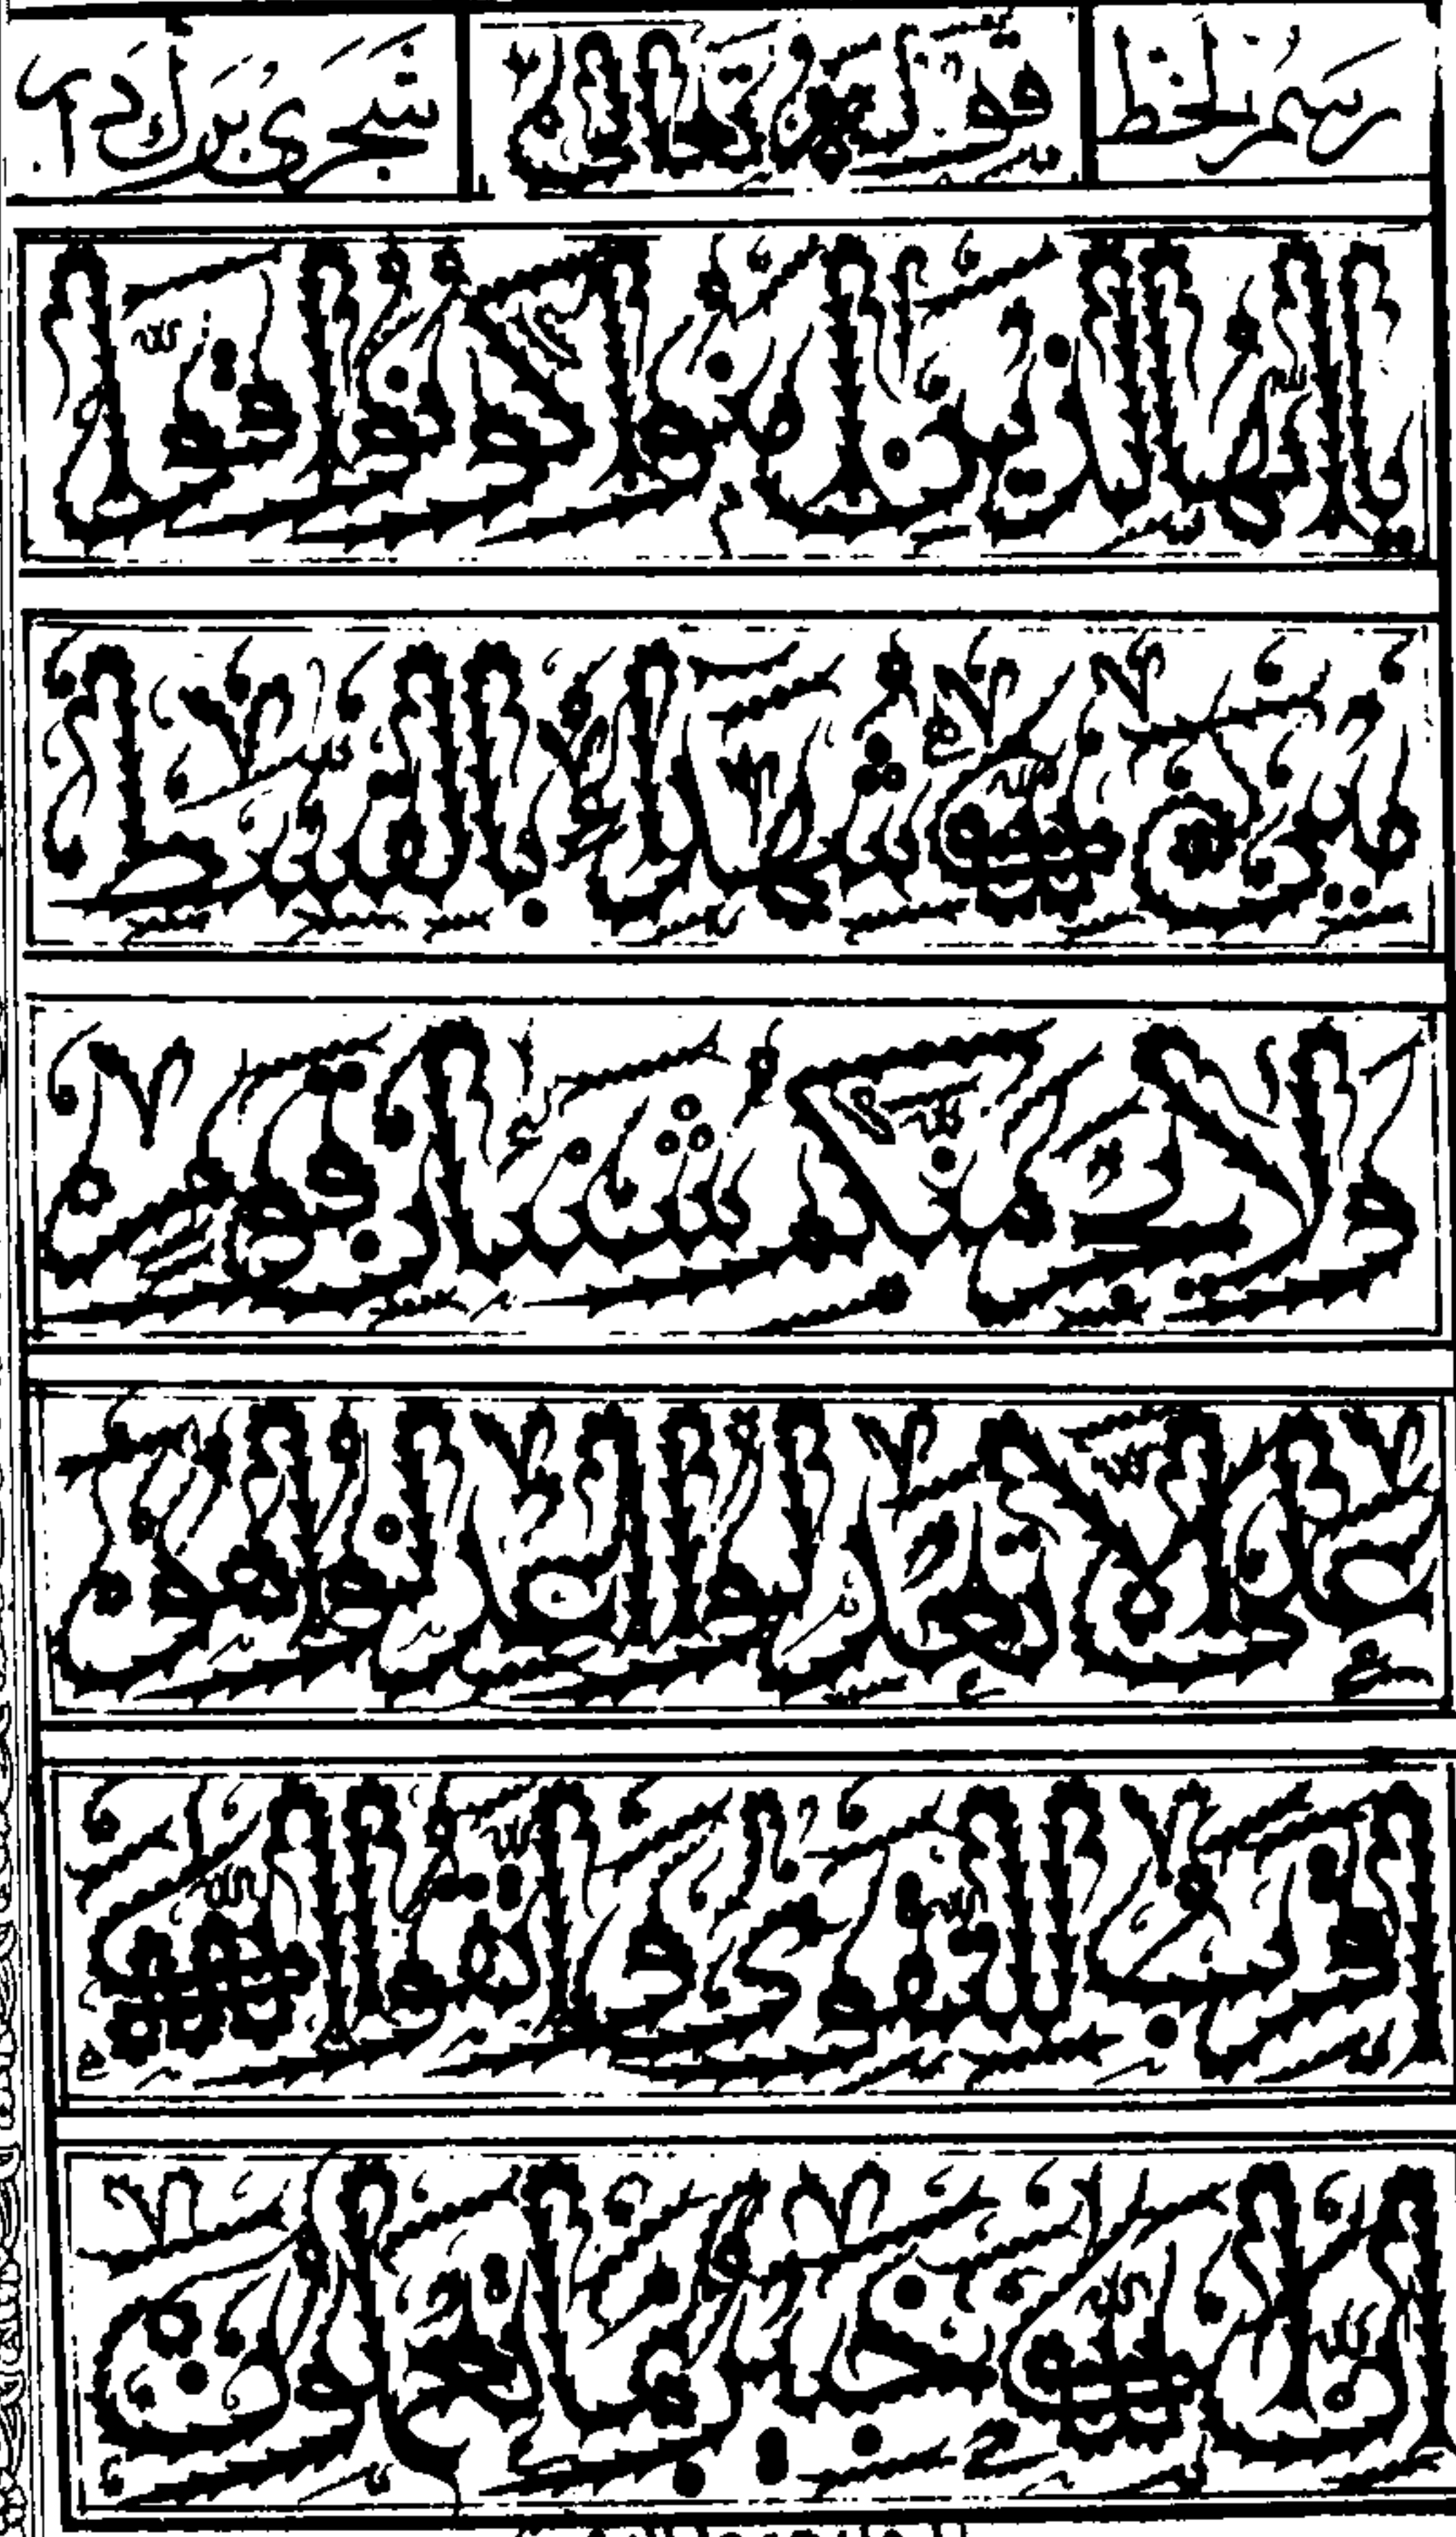 رسم الخط
يا ايها الذين امنوا كونوا قوا
مين لله شهداء بالقسط
ولا يجرمنكم شنان قوم
على الا تعدلوا اعدلوا هو
اقرب للتقوى واتقوا الله
ان الله خبير بما تعملون